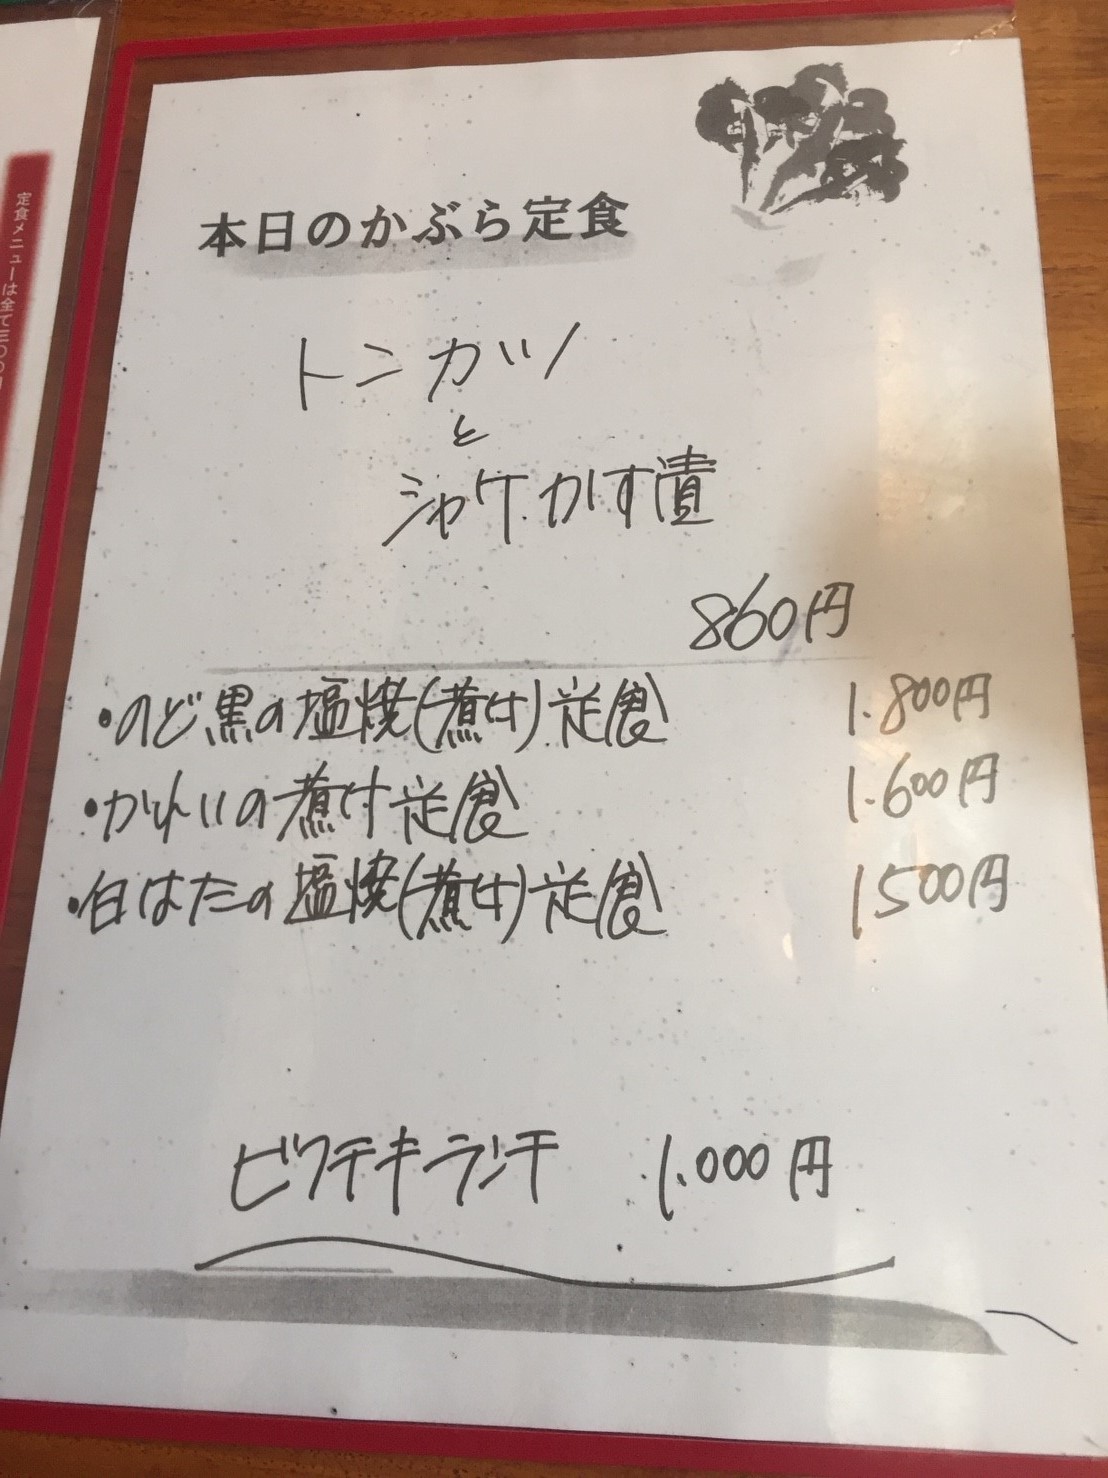 本日のかぶら定食
トンカツ
と
シャケかす漬
860円
・のど黒の塩焼(煮付)定食 1.800円
・かれいの煮付定食 1.600円
・白はたの塩焼(煮付)定食 1500円
ビフテキランチ 1.000円
定食メニューは全て